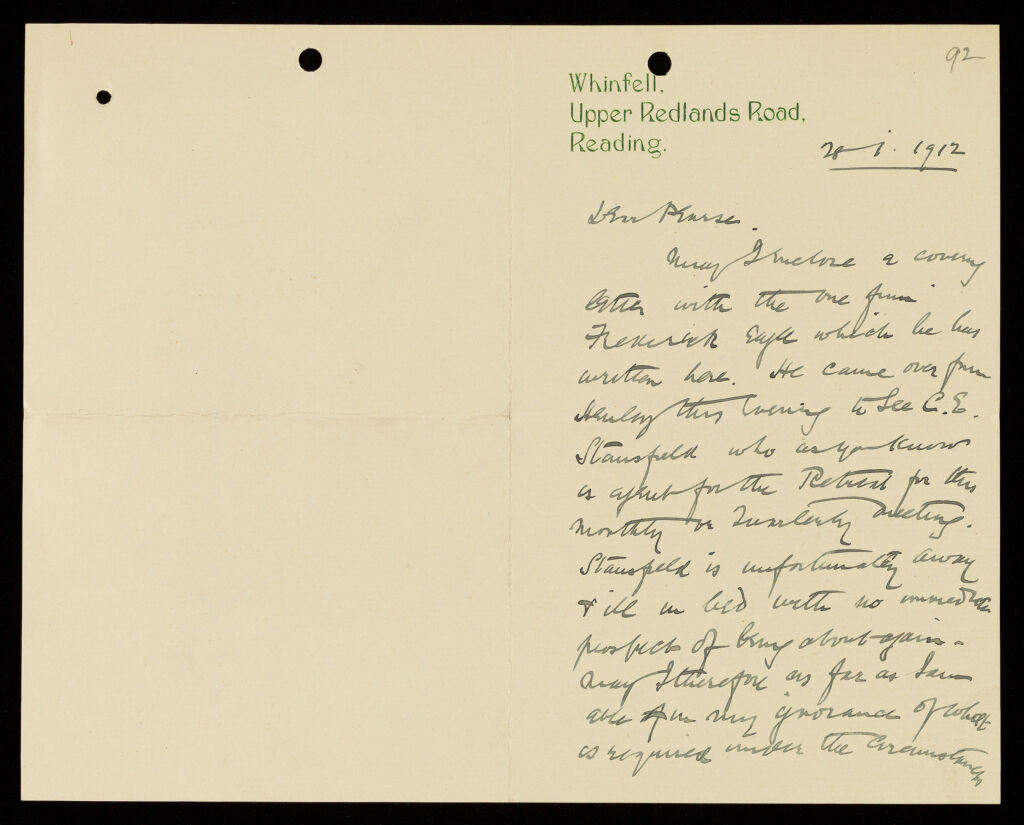 92
Whinfell,
Upper Redlands Road,
Reading.
i. 1912
Dear Pearse.
May I enclose a covering
letter with the one from
Frederick which he has
written here. He came over from
Henley this evening to see C. E.
Stansfeld who as you know
is agent for the Retreat for this
monthly or Quarterly meeting.
Stansfeld is unfortunately away
& ill in bed with no immediate
prospect of being about again -
May I therefore as far as I am
able in my ignorance of what
is required under the circumstances